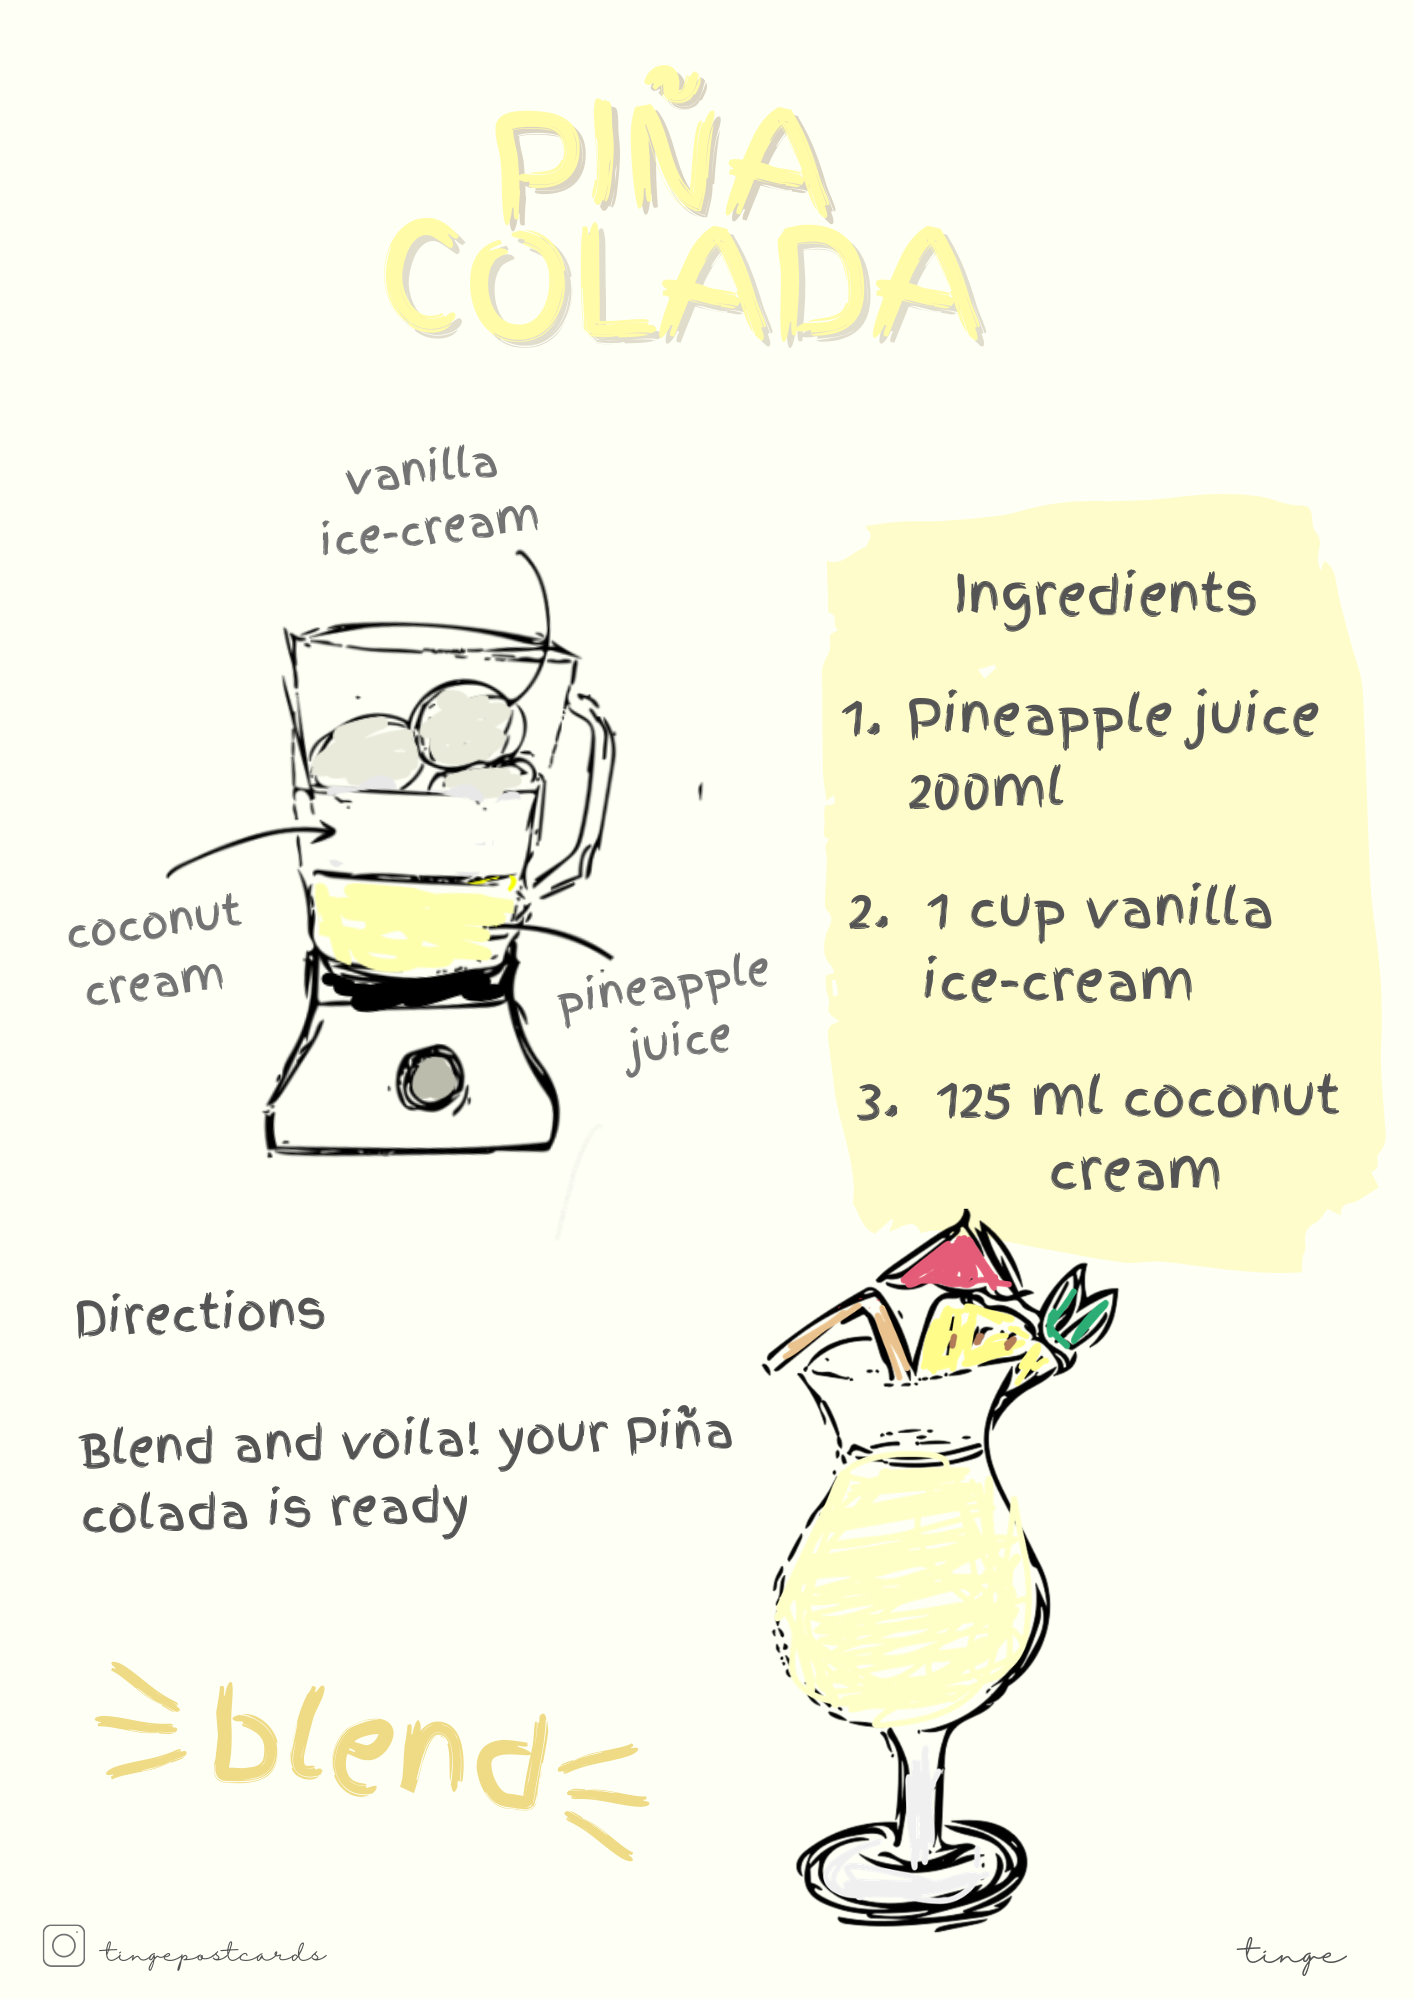 PIÑA
COLADA
vanilla
ice-cream
coconut
cream
pineapple
juice
Ingredients
1. Pineapple juice
200ml
2. 1 cup vanilla
ice-cream
3. 125 ml coconut
cream
Directions
Blend and voila! your Piña
colada is ready
blend
tingepostcards
tinge